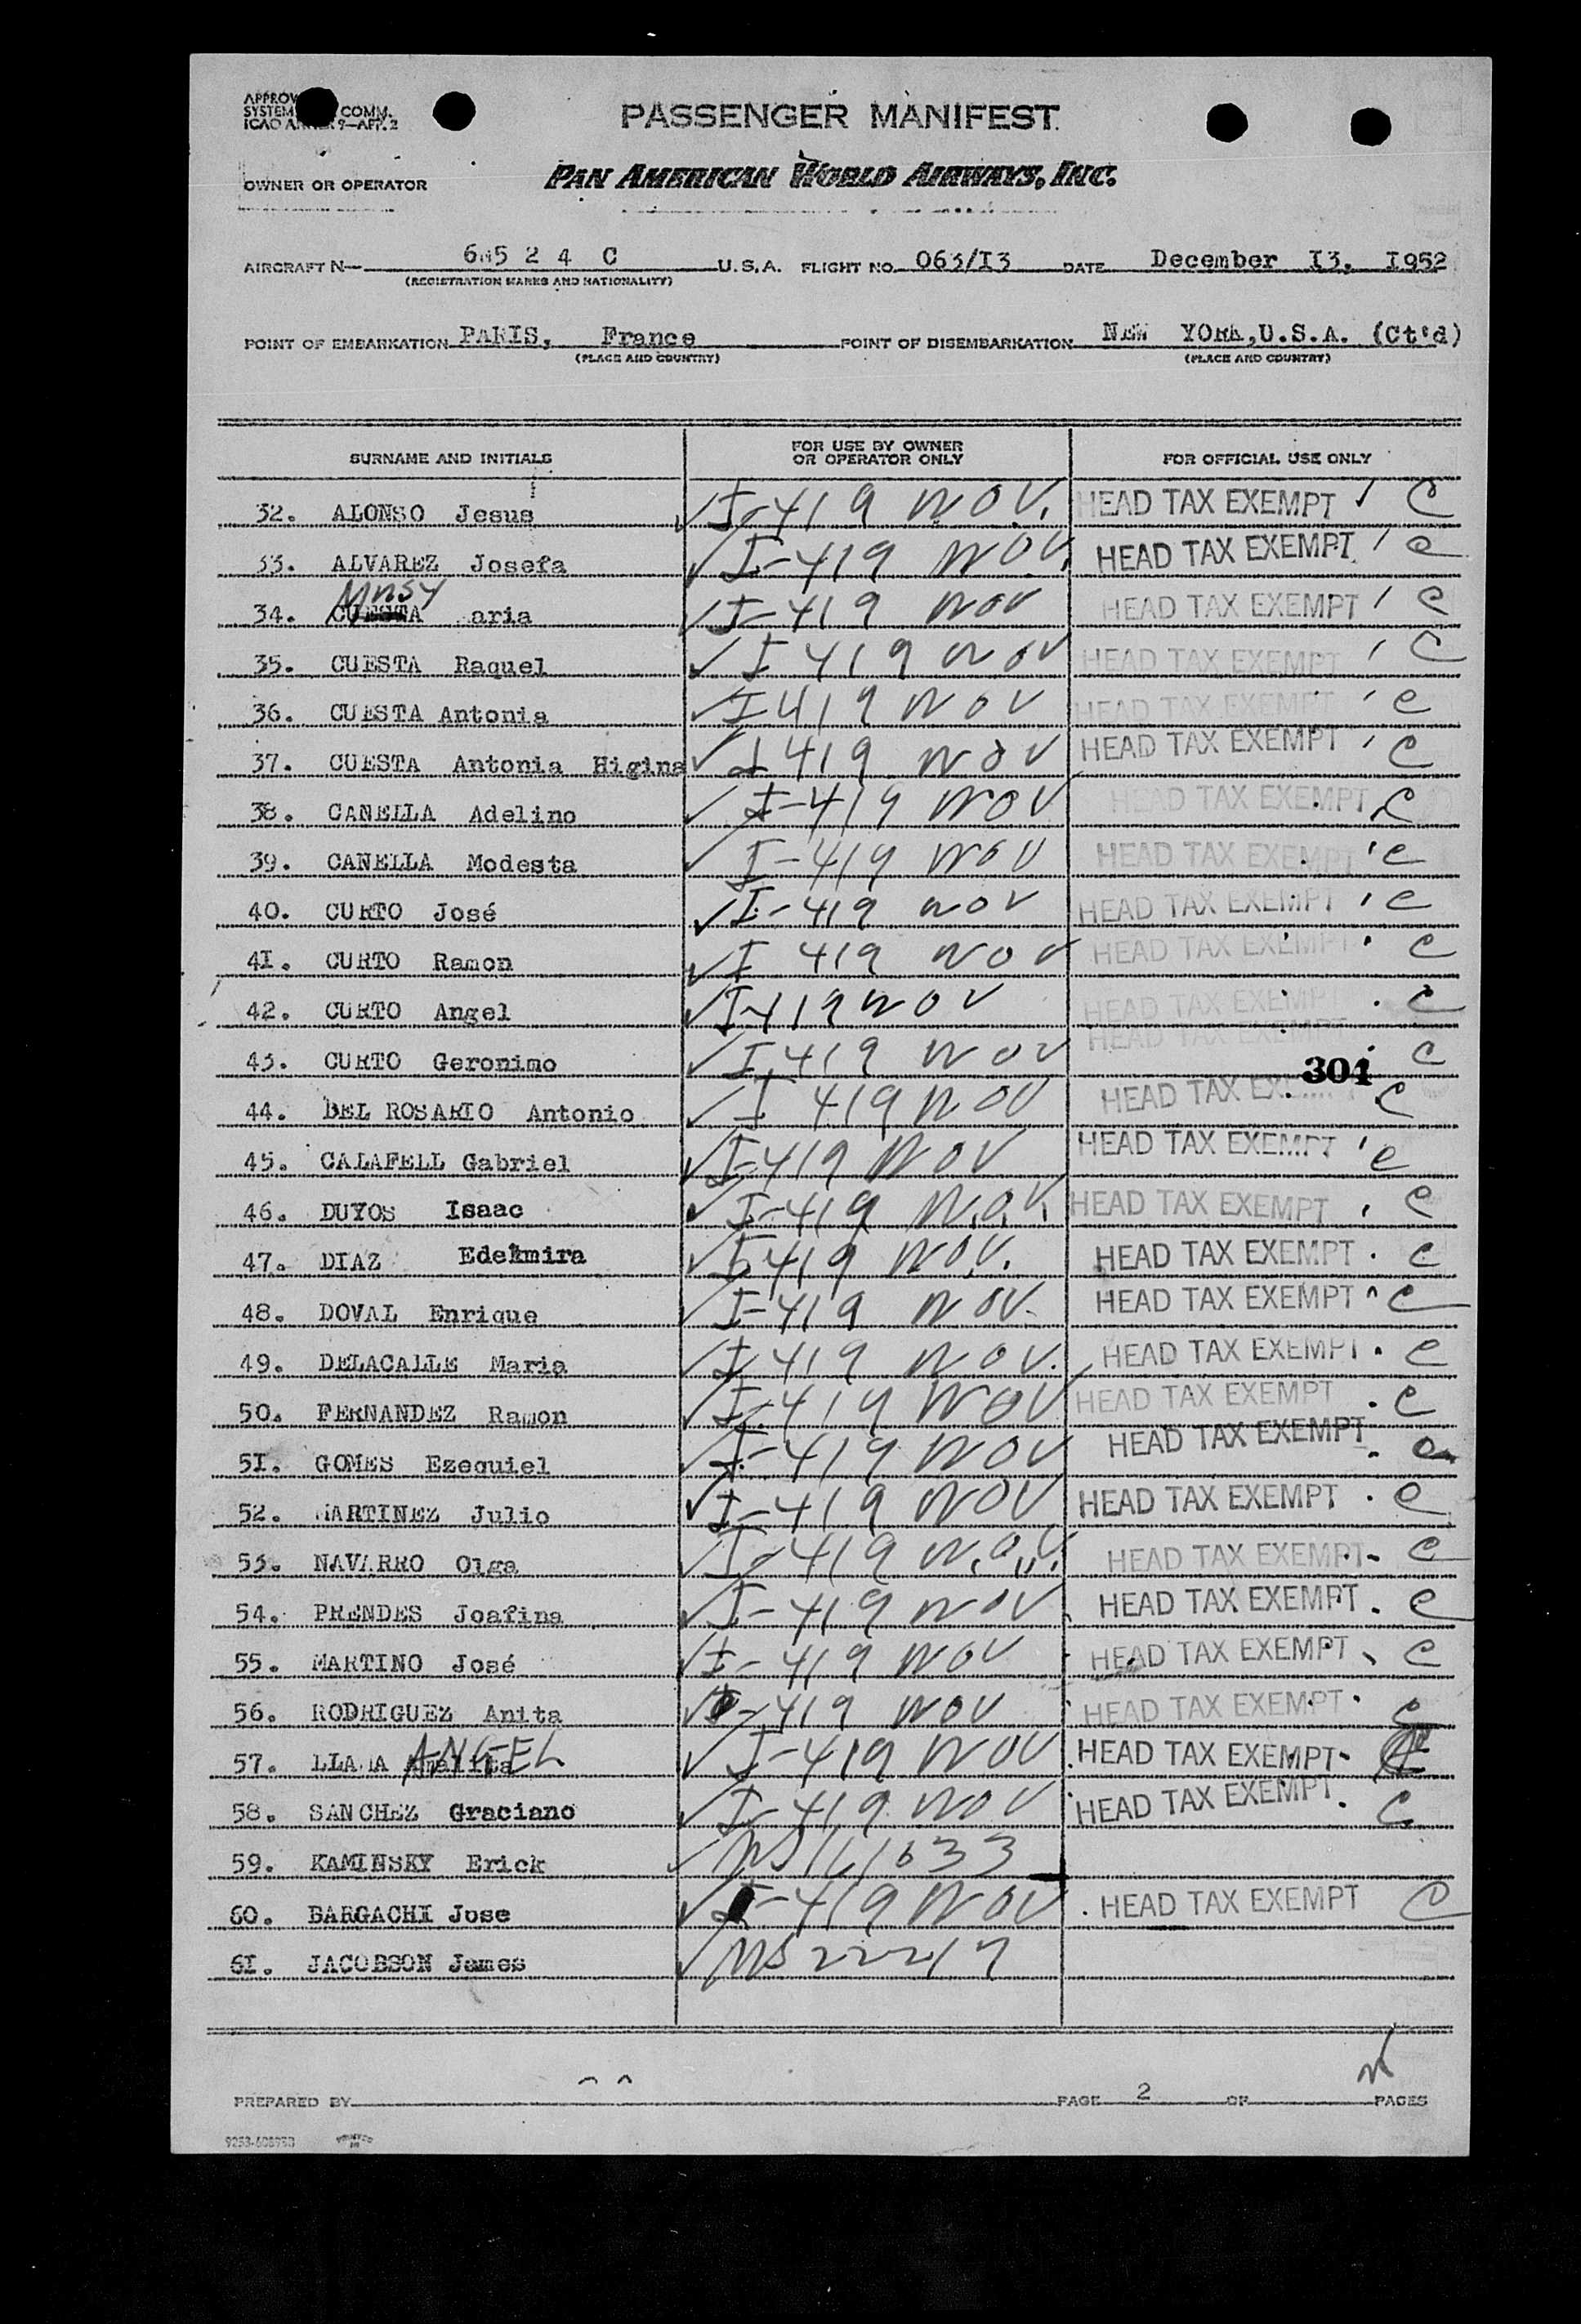 PASSENGER MANIFEST
OWNER OR OPERATOR PAN AMERICAN WORLD AIRWAYS, INC.
AIRCRAFT N— 6 5 2 4 C U.S.A. FLIGHT NO. 063/I3 DATE December I3, I952
(REGISTRATION MARKS AND NATIONALITY)
POINT OF EMBARKATION PARIS, France POINT OF DISEMBARKATION NEW YORK,U.S.A. (Ct'd)
(PLACE AND COUNTRY) (PLACE AND COUNTRY)
SURNAME AND INITIALS FOR USE BY OWNER OR OPERATOR ONLY FOR OFFICIAL USE ONLY
32. ALONSO Jesus ✓ I-419 NOV. HEAD TAX EXEMPT C
33. ALVAREZ Josefa ✓ I-419 NOV. HEAD TAX EXEMPT C
34. CUESTA aria ✓ I-419 NOV HEAD TAX EXEMPT C
35. CUESTA Raquel ✓ I 419 NOV HEAD TAX EXEMPT C
36. CUESTA Antonia ✓ I 419 NOV HEAD TAX EXEMPT C
37. CUESTA Antonia Higina ✓ I 419 NOV HEAD TAX EXEMPT C
38. CANELLA Adelino ✓ I-419 NOV HEAD TAX EXEMPT C
39. CANELLA Modesta ✓ I-419 NOV HEAD TAX EXEMPT C
40. CURTO José ✓ I-419 NOV HEAD TAX EXEMPT C
4I. CURTO Ramon ✓ I 419 NOV HEAD TAX EXEMPT C
42. CURTO Angel ✓ I-419 NOV HEAD TAX EXEMPT C
43. CURTO Geronimo ✓ I 419 NOV HEAD TAX EXEMPT C
301
44. DEL ROSARIO Antonio ✓ I 419 NOV HEAD TAX C
45. CALAFELL Gabriel ✓ I-419 NOV HEAD TAX EXEMPT C
46. DUYOS Isaac ✓ I-419 N.O.V. HEAD TAX EXEMPT C
47. DIAZ Edelmira ✓ I-419 NOV. HEAD TAX EXEMPT C
48. DOVAL Enrique ✓ I-419 NOV. HEAD TAX EXEMPT C
49. DELACALLE Maria ✓ I 419 NOV. HEAD TAX EXEMPT C
50. FERNANDEZ Ramon ✓ I-419 NOV HEAD TAX EXEMPT C
5I. GOMES Ezequiel ✓ I-419 NOV HEAD TAX EXEMPT C
52. MARTINEZ Julio ✓ I-419 NOV HEAD TAX EXEMPT C
53. NAVARRO Olga ✓ I-419 N.O.V. HEAD TAX EXEMPT C
54. PRENDES Joafina ✓ I-419 NOV HEAD TAX EXEMPT C
55. MARTINO José ✓ I-419 NOV HEAD TAX EXEMPT C
56. RODRIGUEZ Anita ✓ I-419 NOV HEAD TAX EXEMPT C
57. ANGEL ✓ I-419 NOV HEAD TAX EXEMPT
58. SANCHEZ Graciano ✓ I-419 NOV HEAD TAX EXEMPT C
59. KAMINSKY Erick ✓
60. BARGACHI Jose ✓ I-419 NOV HEAD TAX EXEMPT C
6I. JACOBSON James ✓ NS 22217
PREPARED BY PAGE 2 OF PAGES